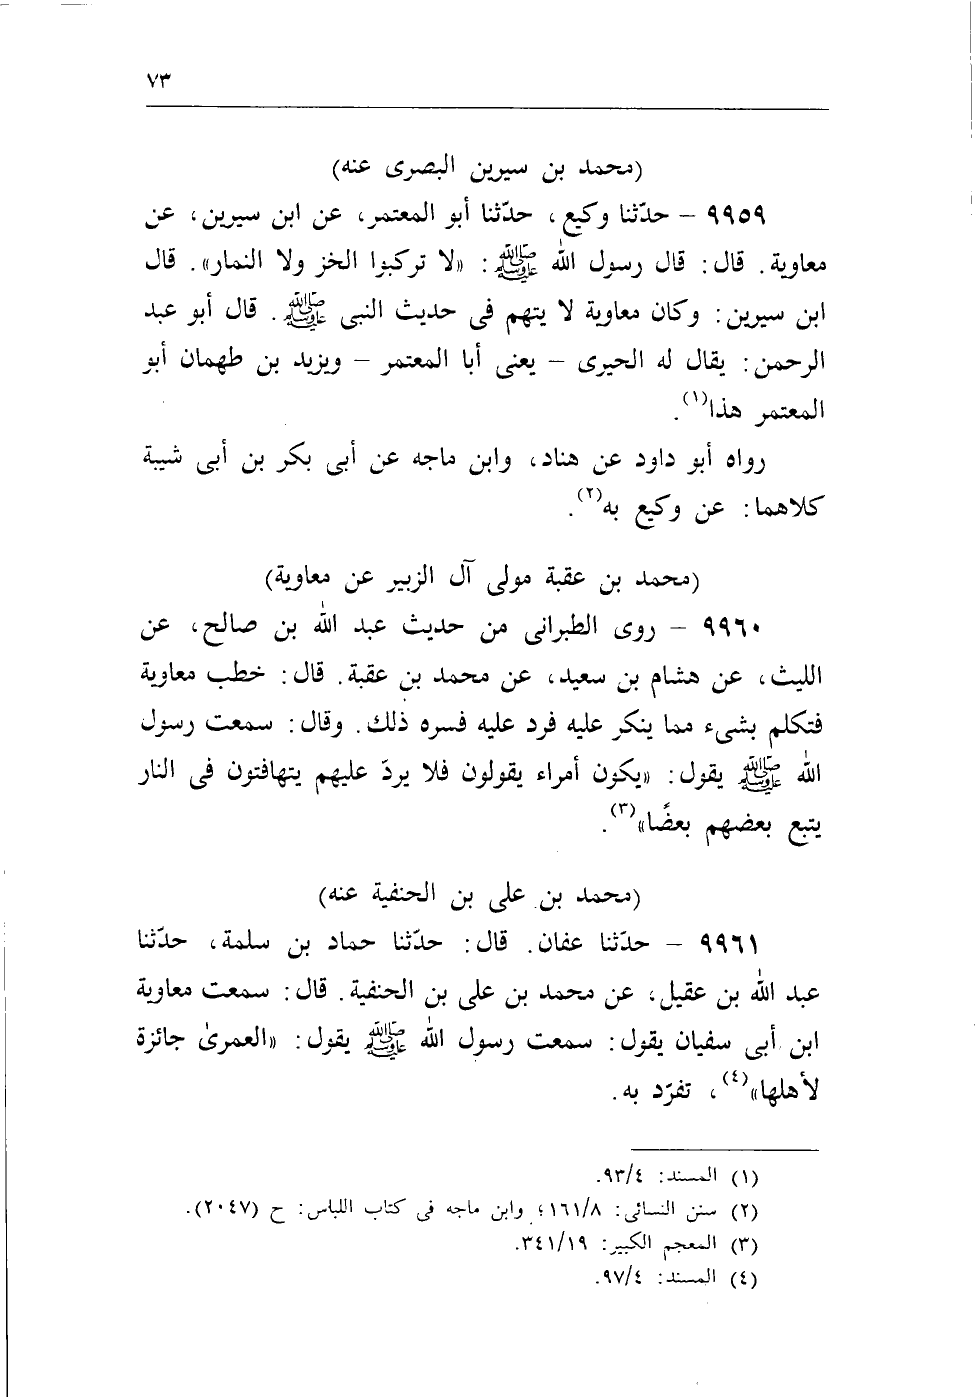 ٧٣
(محمد بن سيرين البصرى عنه)
٩٩٥٩ - حدّثنا وكيع، حدّثنا أبو المعتمر، عن ابن سيرين، عن
معاوية. قال: قال رسول الله ﷺ: «لا تركبوا الخز ولا النمار». قال
ابن سيرين: وكان معاوية لا يتهم فى حديث النبى ﷺ. قال أبو عبد
الرحمن: يقال له الحيرى - يعنى أبا المعتمر - ويزيد بن طهمان أبو
المعتمر هذا(١).
رواه أبو داود عن هناد، وابن ماجه عن أبى بكر بن أبى شيبة
كلاهما: عن وكيع به(٢).
(محمد بن عقبة مولى آل الزبير عن معاوية)
٩٩٦٠ - روى الطبرانى من حديث عبد الله بن صالح، عن
الليث، عن هشام بن سعيد، عن محمد بن عقبة. قال: خطب معاوية
فتكلم بشىء مما ينكر عليه فرد عليه فسره ذلك. وقال: سمعت رسول
الله ﷺ يقول: «يكون أمراء يقولون فلا يردّ عليهم يتهافتون فى النار
يتبع بعضهم بعضًا»(٣).
(محمد بن على بن الحنفية عنه)
٩٩٦١ - حدّثنا عفان. قال: حدّثنا حماد بن سلمة، حدّثنا
عبد الله بن عقيل، عن محمد بن على بن الحنفية. قال: سمعت معاوية
ابن أبى سفيان يقول: سمعت رسول الله ﷺ يقول: «العمرىٰ جائزة
لأهلها»(٤)، تفرّد به.
(١) المسند: ٩٣/٤.
(٢) سنن النسائى: ١٦١/٨؛ وابن ماجه فى كتاب اللباس: ح (٢٠٤٧).
(٣) المعجم الكبير: ٣٤١/١٩.
(٤) المسند: ٩٧/٤.